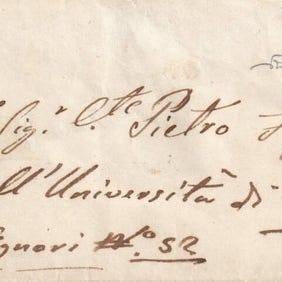 Sig.r C.te Pietro
ll'Università di
gnori N.o 52